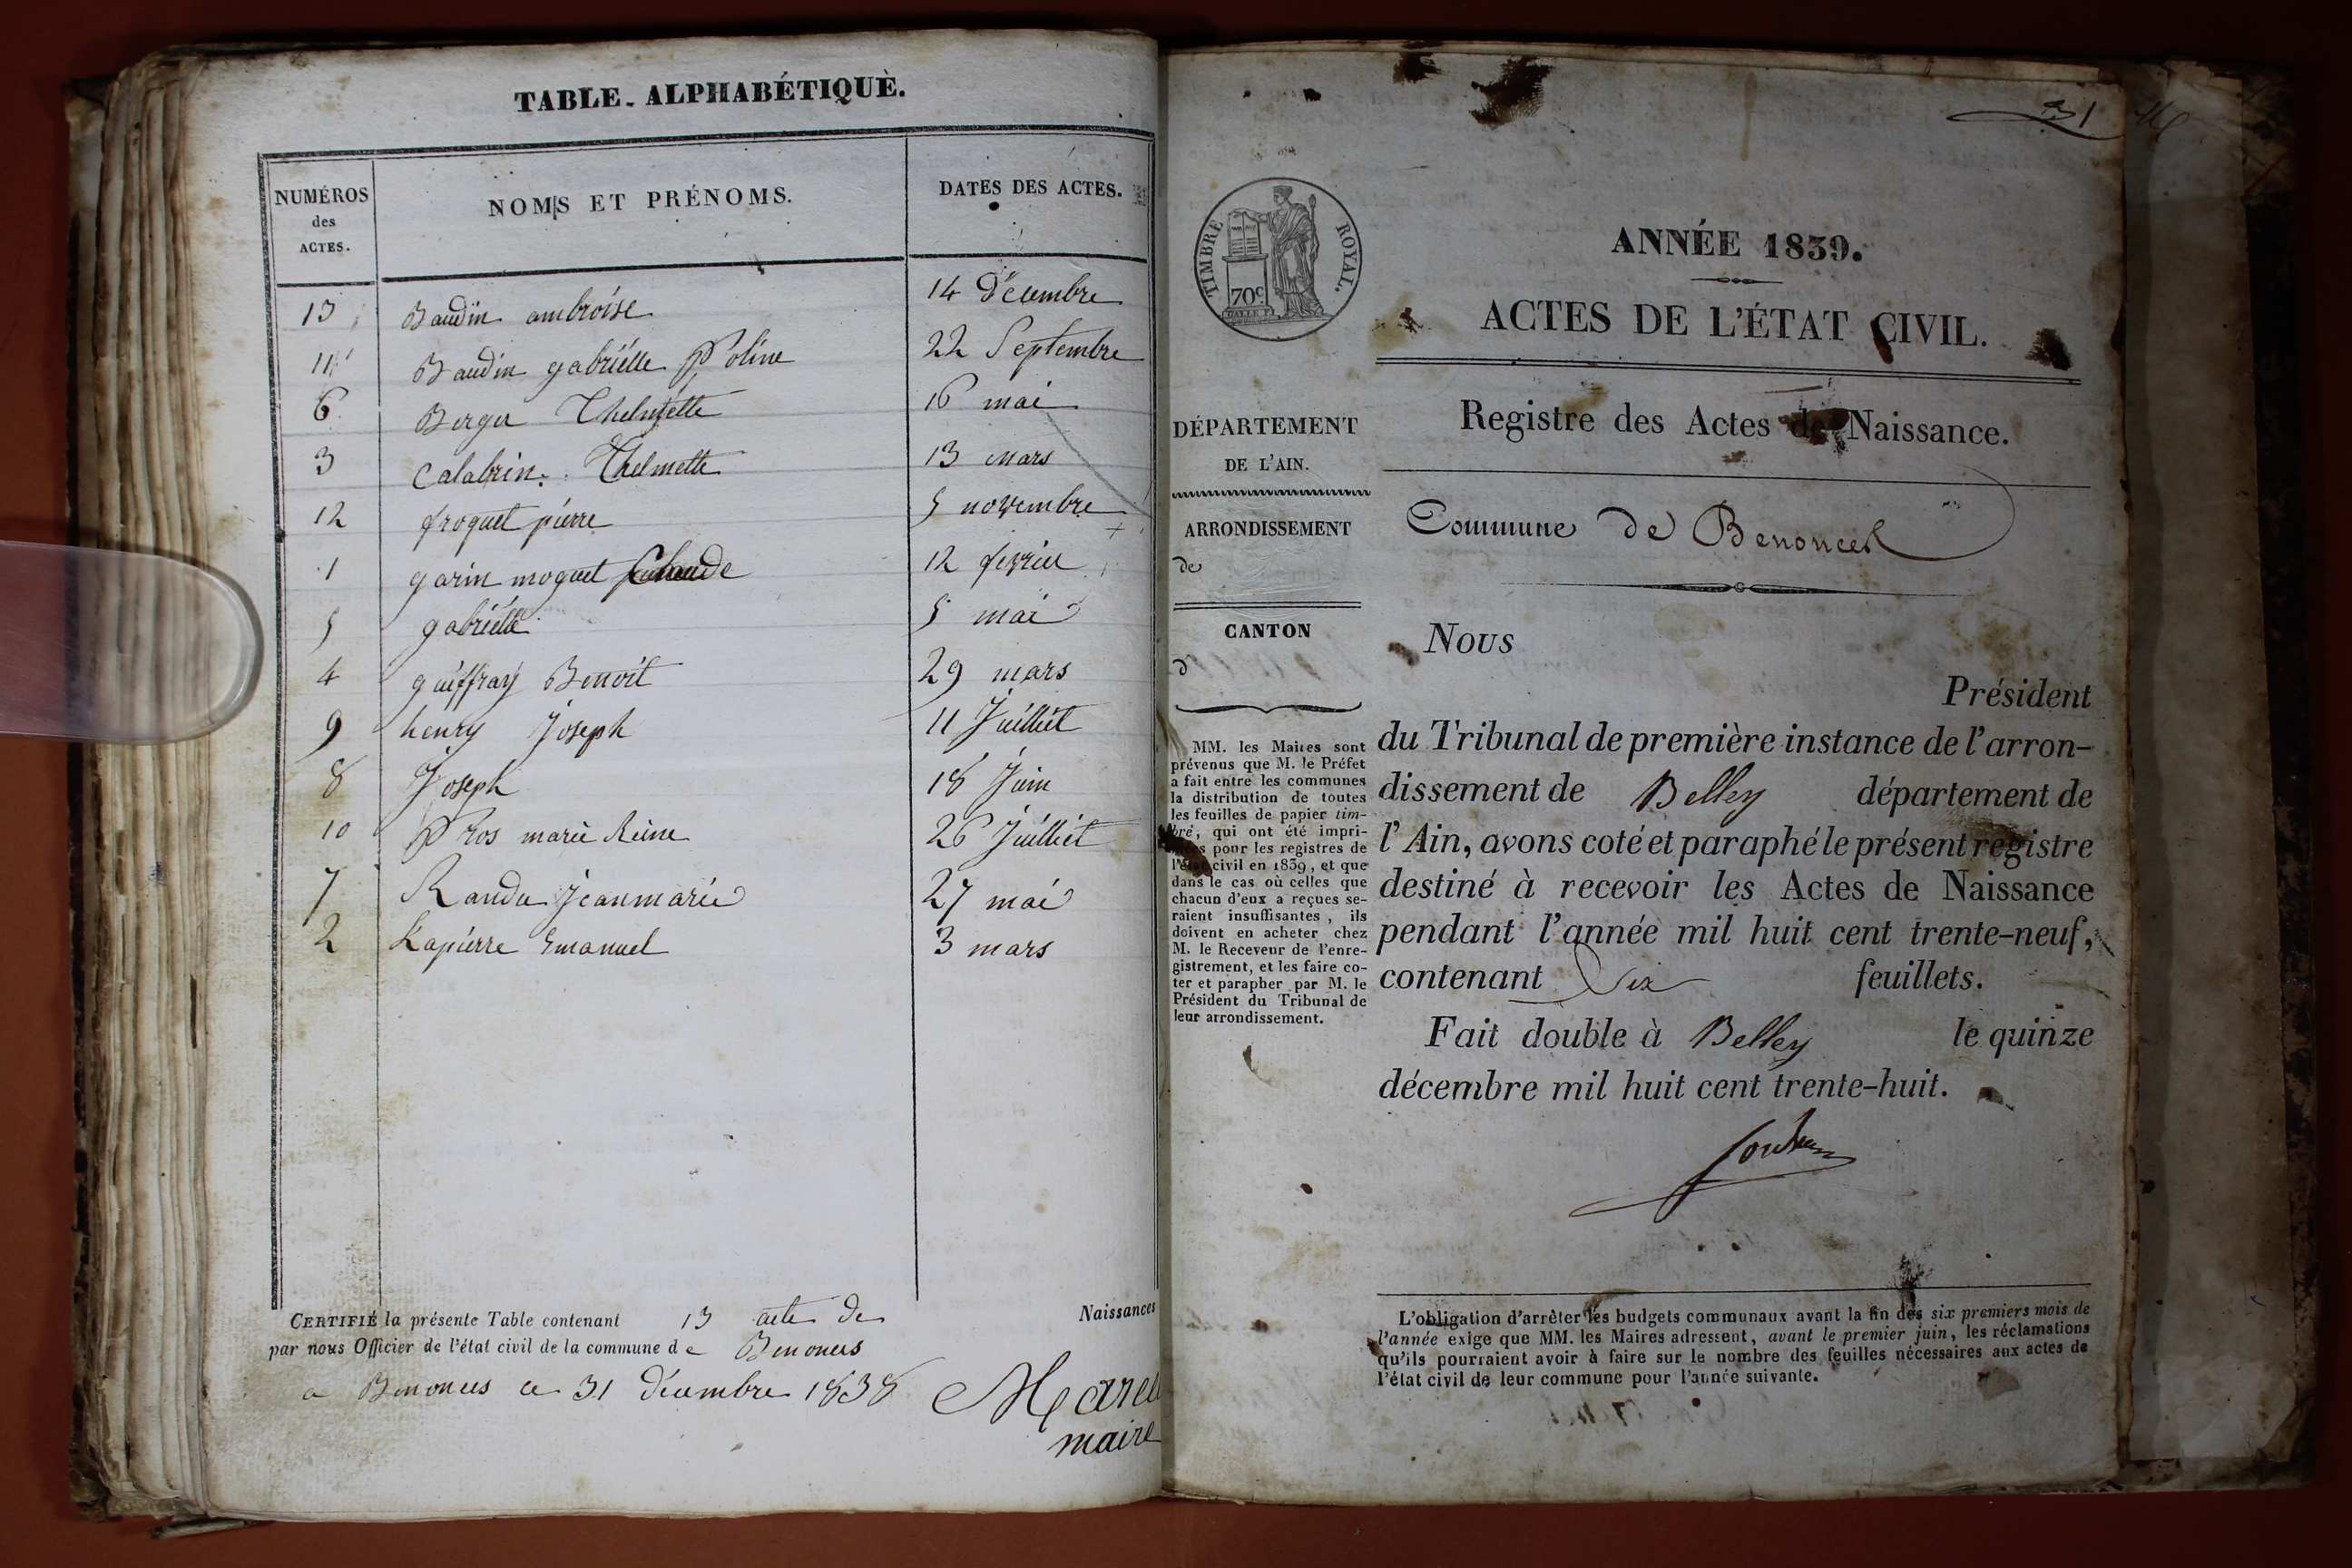 TABLE ALPHABÉTIQUE.
NUMÉROS des ACTES. NOMS ET PRÉNOMS. DATES DES ACTES.
13 Baudin ambroise 14 Décembre
11 Baudin gabriélle Poline 22 Septembre
6 Berger Thelmette 16 mai
3 Calabrin Thelmette 13 mars
12 froquet piérre 5 novembre
1 garin moquet Claude 12 fevrier
5 gabriélle 5 mai
4 guiffray Benoit 29 mars
9 henry Joseph 11 Juilliet
8 Joseph 18 Juin
10 Pros marie Reine 26 Juilliet
7 Randu Jeanmarie 27 mai
2 Lapiérre Emanuel 3 mars
CERTIFIÉ la présente Table contenant 13 acte de Naissances
par nous Officier de l'état civil de la commune de Benonces
a Benonces ce 31 décembre 1838
maire
31
TIMBRE ROYAL.
70c
ANNÉE 1839.
ACTES DE L'ÉTAT CIVIL.
Registre des Actes de Naissance.
Commune de Benonces
DÉPARTEMENT
DE L'AIN.
ARRONDISSEMENT
de
CANTON
d
MM. les Maires sont
prévenus que M. le Préfet
a fait entre les communes
la distribution de toutes
les feuilles de papier tim-
bré, qui ont été impri-
mées pour les registres de
l'état civil en 1839, et que
dans le cas où celles que
chacun d'eux a reçues se-
raient insuffisantes, ils
doivent en acheter chez
M. le Receveur de l'enre-
gistrement, et les faire co-
ter et parapher par M. le
Président du Tribunal de
leur arrondissement.
Nous
Président
du Tribunal de première instance de l'arron-
dissement de Belley département de
l'Ain, avons coté et paraphé le présent registre
destiné à recevoir les Actes de Naissance
pendant l'année mil huit cent trente-neuf,
contenant Six feuillets.
Fait double à Belley le quinze
décembre mil huit cent trente-huit.
L'obligation d'arrêter les budgets communaux avant la fin des six premiers mois de
l'année exige que MM. les Maires adressent, avant le premier juin, les réclamations
qu'ils pourraient avoir à faire sur le nombre des feuilles nécessaires aux actes de
l'état civil de leur commune pour l'année suivante.